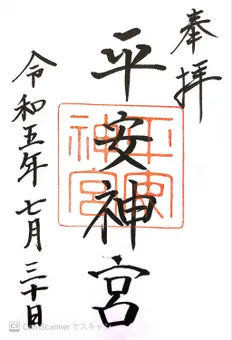 奉拝
平安神宮
平安神宮
令和五年七月三十日
CS CamScannerでスキャン